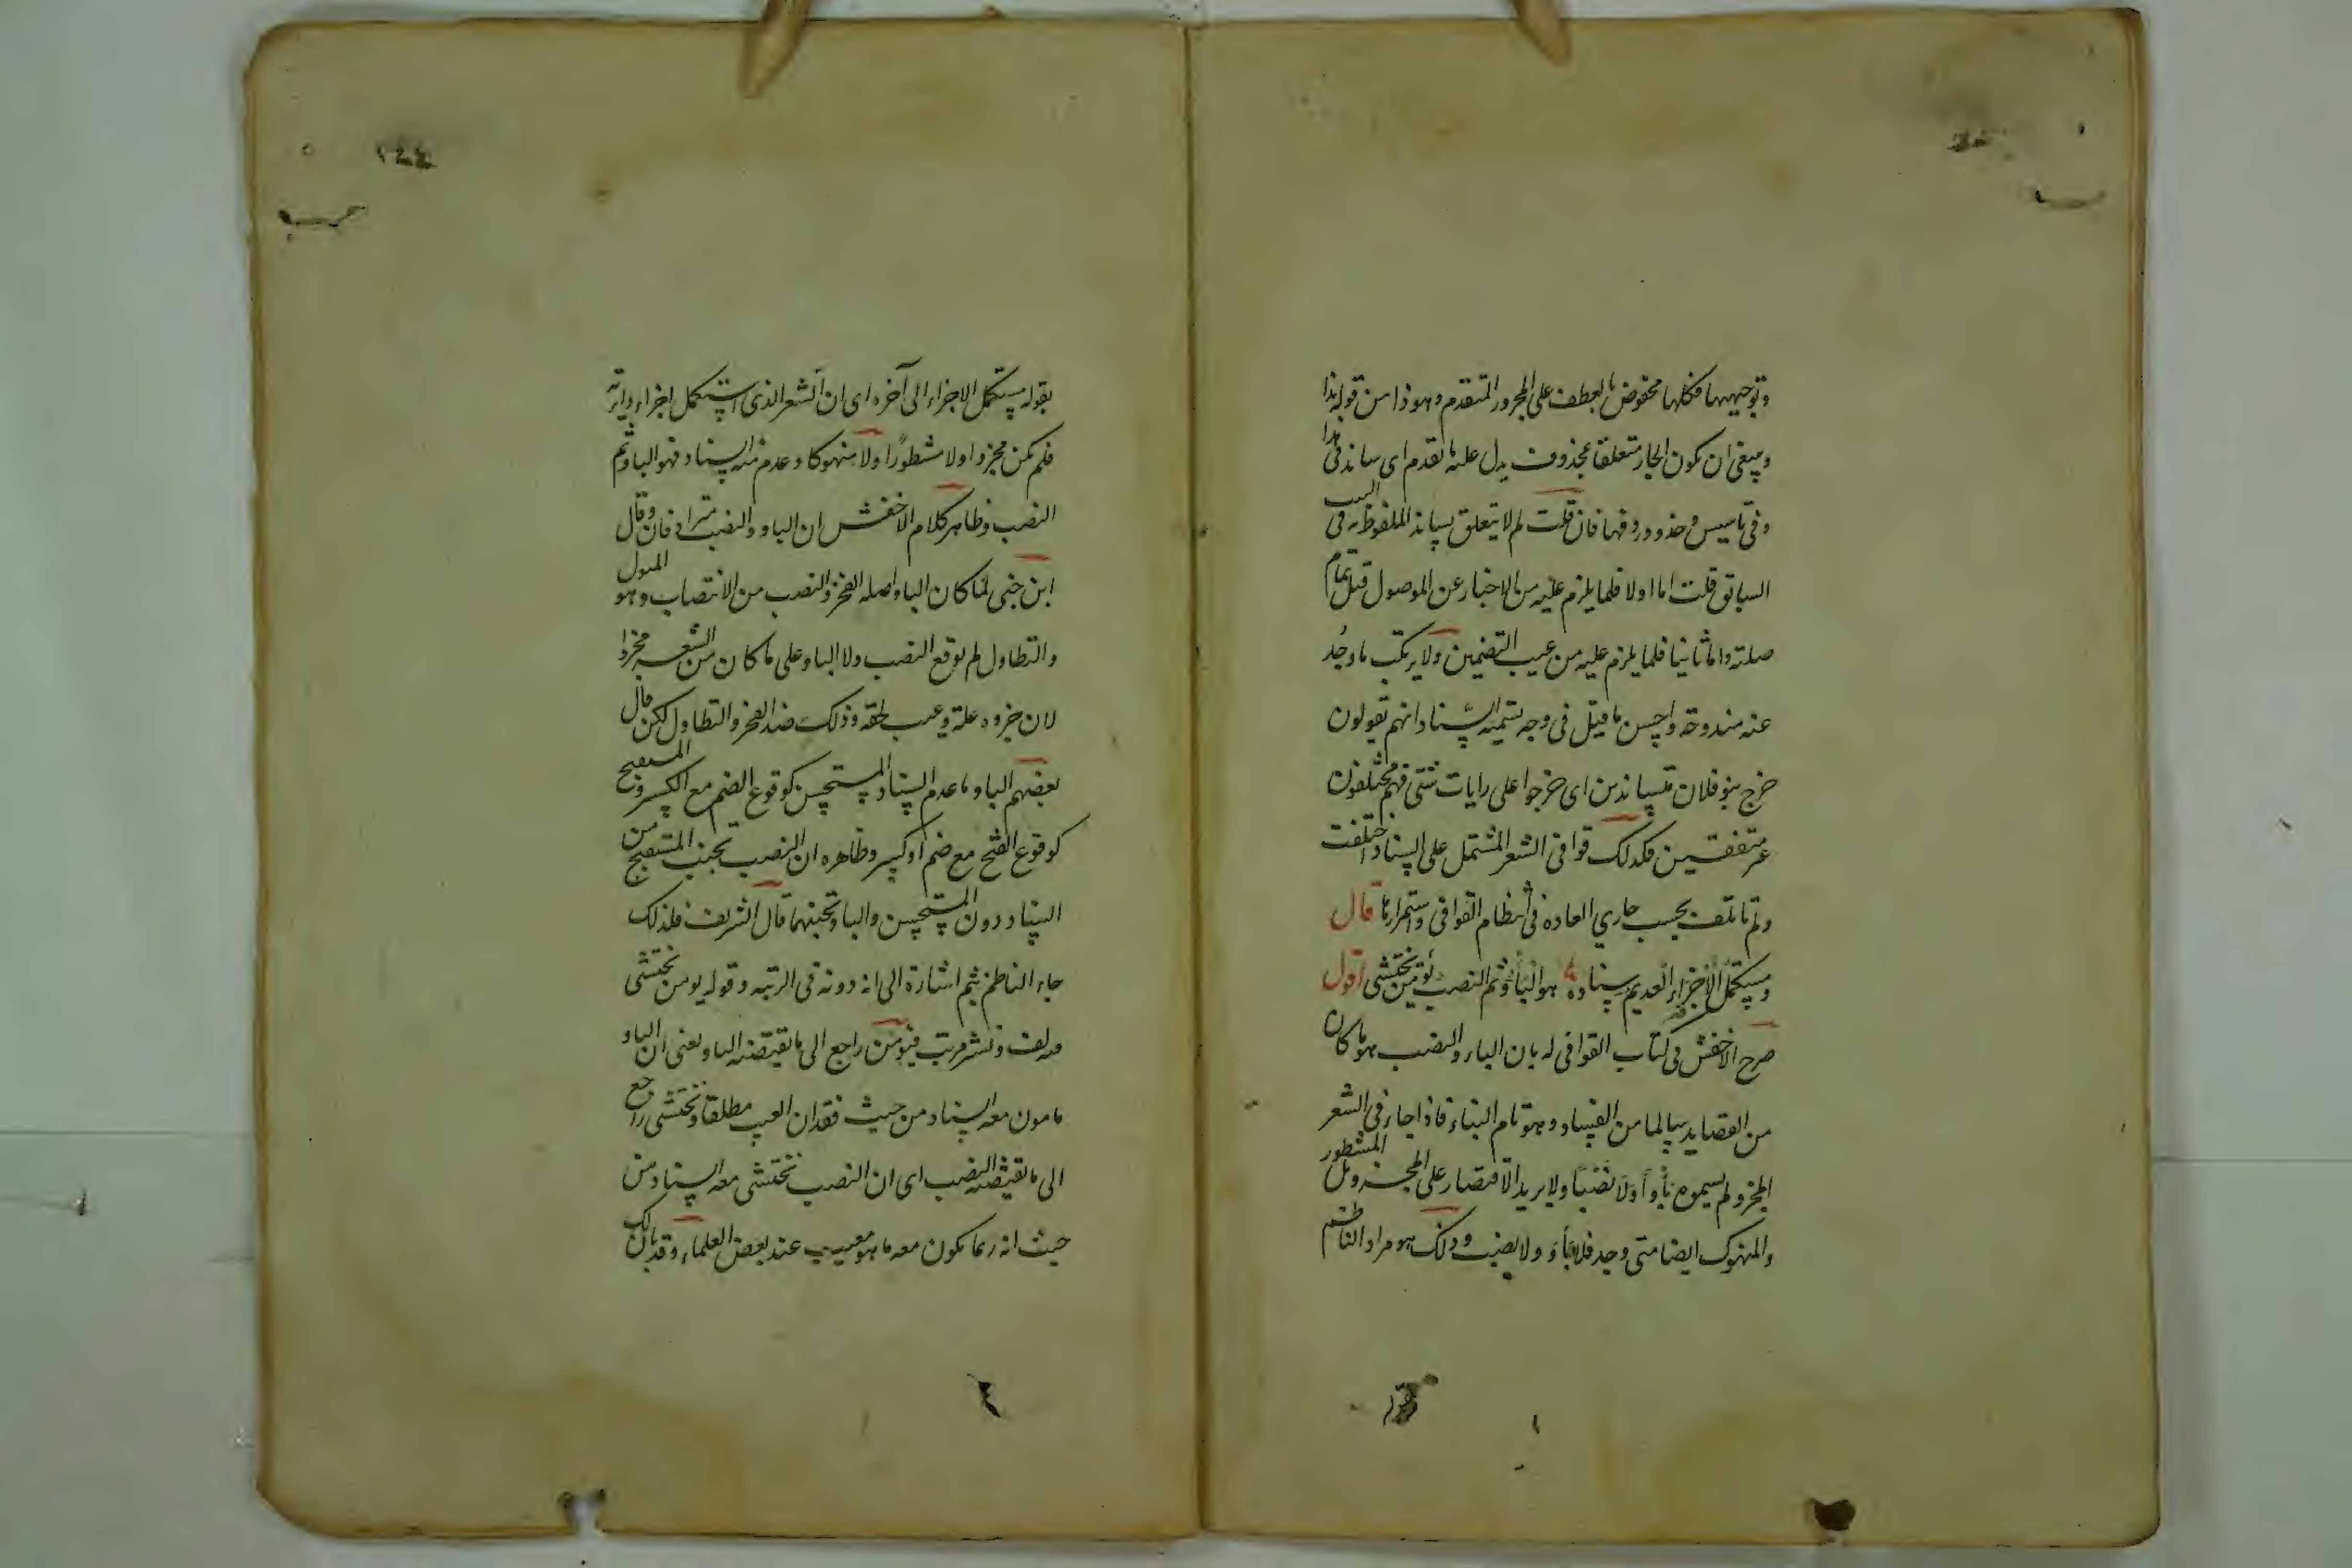 وتوجيهها فكلها مخفوض بالعطف على المجرور المتقدم وهو ذا من قوله بذا
وينبغي ان يكون الجار متعلقا بمحذوف يدل عليه ما تقدم اى ساند فى هذا
وفى تأسيس وحذو وردفها فان قلت لم لا يتعلق بساند الملفوظ به فى البيت
السابق قلت اما اولا فلما يلزم عليه من الاخبار عن الموصول قبل تمام
صلته واما ثانيا فلما يلزم عليه من عيب التضمين ولا يرتكب ما وجد
عنه مندوحة واحسن ما قيل فى وجه تسميه السناد انهم يقولون
خرج بنو فلان متساندين اى خرجوا على رايات شتى فهم مختلفون
غير متفقين فكذلك قوافى الشعر المشتمل على السناد اختلفت
ولم تأتلف بحسب جارى العاده فى انتظام القوافى واستمرارها قال
ومستكمل الاجزاء العديم سناده هو البأو ثم النصب يؤمن تختشى اقول
صرح الاخفش فى كتاب القوافى له بان الباو والنصب هو ما كان
من القصايد سالما من الفساد وهو تام البناء فاذا جاء فى الشعر
المجزو لم يسموه بأوا ولا نصبا ولا يريد الاقتصار على المجزو بل المشطور
والمنهوك ايضا متى وجد فلا بأو ولا نصب وذلك هو مراد الناظم
بقوله مستكمل الاجزاء الى آخره اى ان الشعر الذى استكمل اجزاء دائرته
فلم يكن مجزوا ولا مشطورا ولا منهوكا وعدم منه السناد فهو الباو ثم
النصب وظاهر كلام الاخفش ان الباو والنصب مترادفان وقال
ابن جنى لما كان الباو اصله الفخر والنصب من الانتصاب وهو المثول
والتطاول لم يوقع النصب ولا الباو على ما كان من الشعر مجزوا
لان جزوه علة وعيب لحقه وذلك ضد الفخر والتطاول لكن قال
بعضهم الباو ما عدم السناد المستحسن كوقوع الضم مع الكسر والمستقبح
كوقوع الفتح مع ضم او كسر وظاهره ان النصب تجنب المستقبح من
السناد دون المستحسن والباو تجنبهما قال الشريف فلذلك
جاء الناظم بثم اشارة الى انه دونه فى الرتبه وقوله يومن تختشى
فيه لف ونشر مرتب فيومن راجع الى ما يقتضيه الباو يعنى ان الباو
مامون معه السناد من حيث فقدان العيب مطلقا وتختشى راجع
الى ما يقتضيه النصب اى ان النصب تختشى معه السناد من
حيث انه ربما يكون معه ما هو معيب عند بعض العلماء وقد بان لك